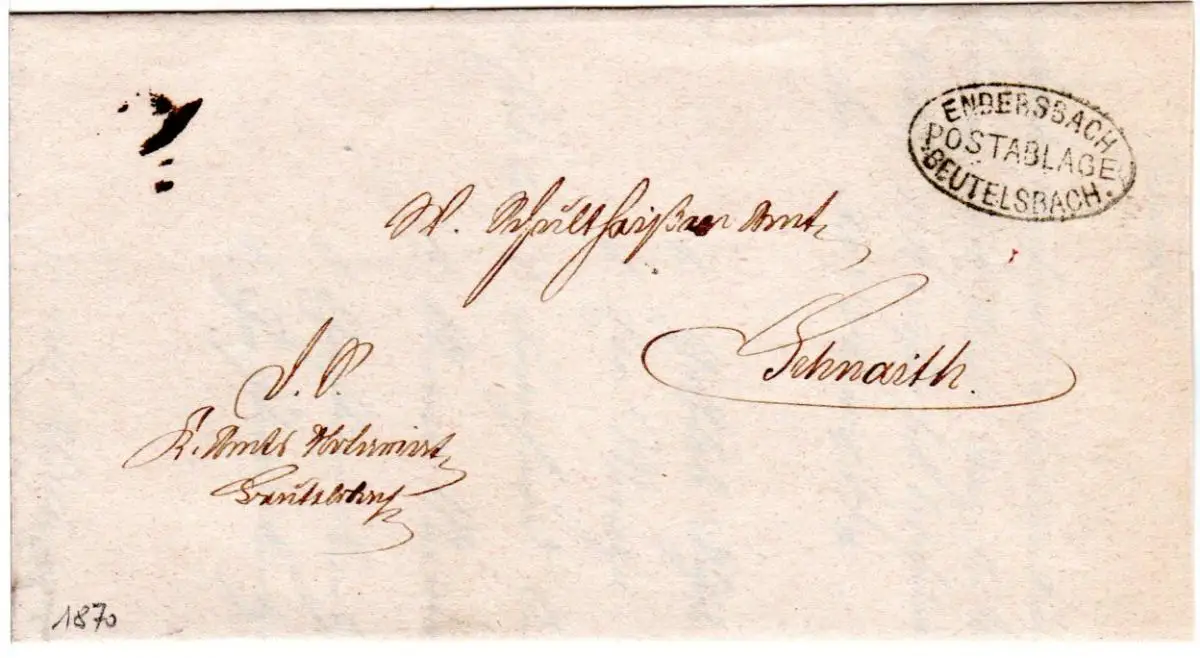 ENDERSBACH
POSTABLAGE
BEUTELSBACH.
W. Schultheißen Amt
Schnaith.
J. P.
K. Amts Notariat
Beutelsbach
1870